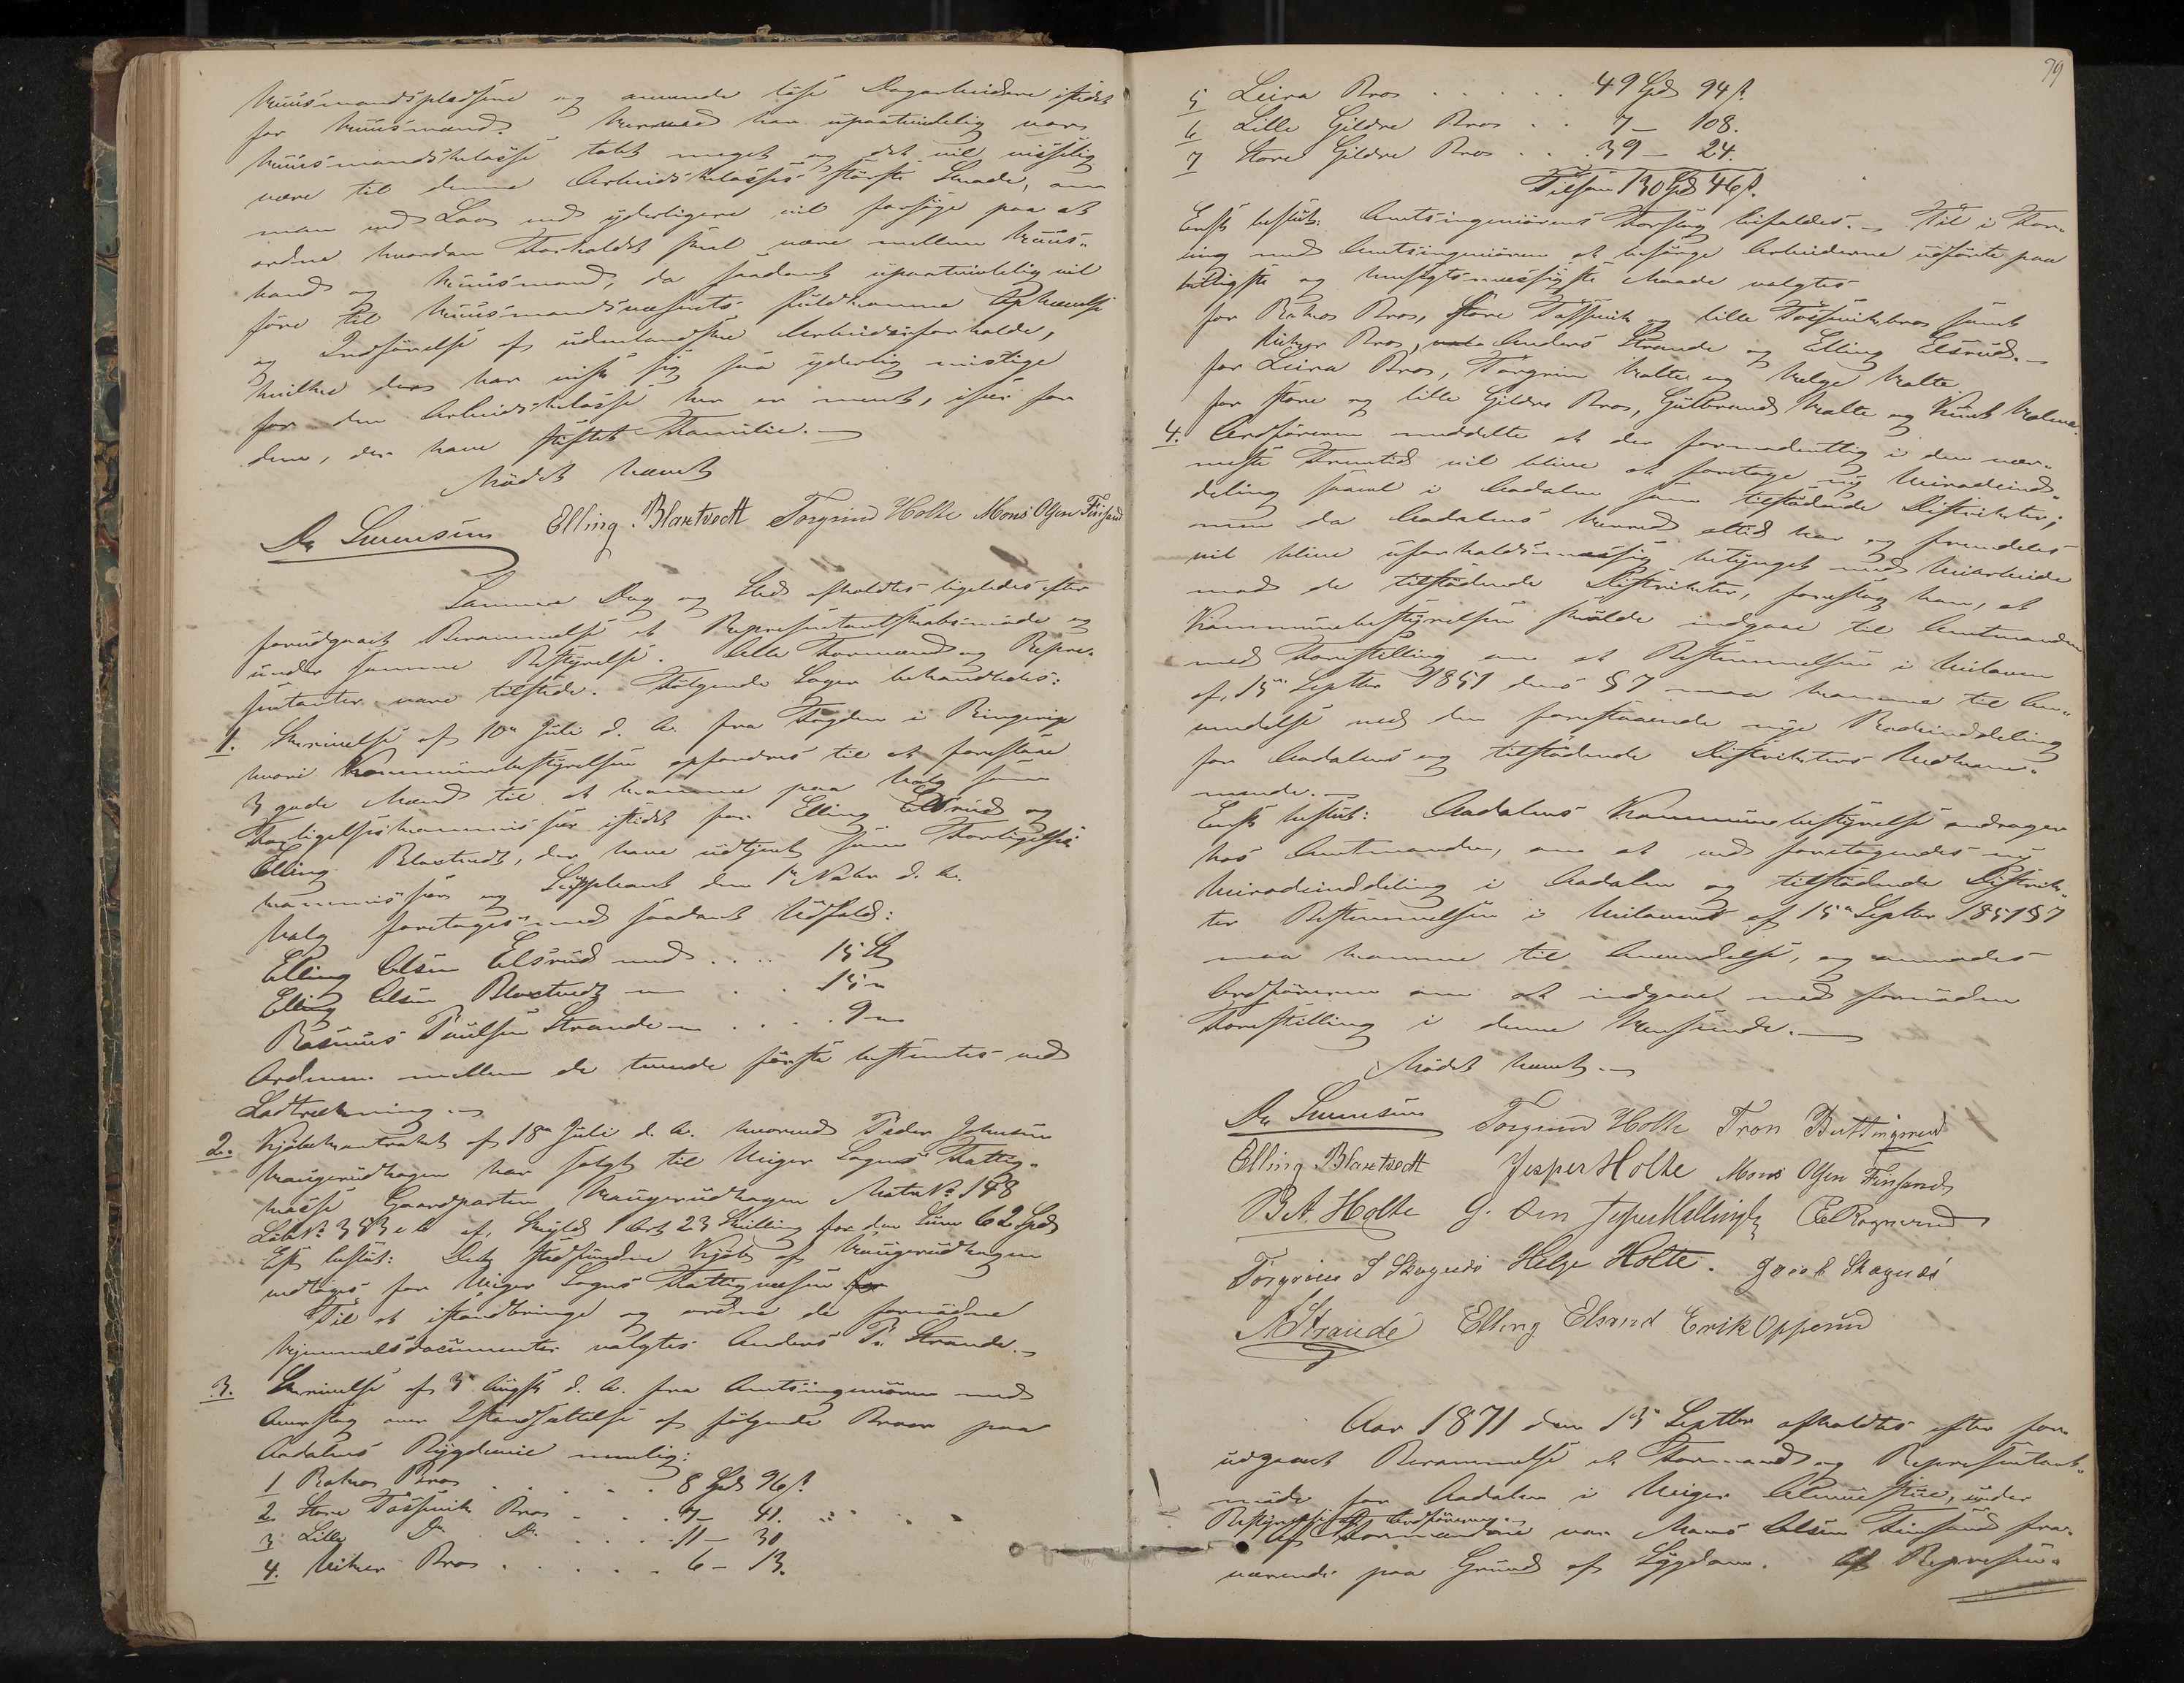 Huusmandspladsene og anvende løse Dagarbeidere istedet
for Huusmænd. Herved har upaatvivlelig vor
Huusmandsklasse tabt meget og det vil visselig
være til denne Arbeidsklasses største Skade, om
man ved Lov end yderligere vil forsøge paa at
ordne hvordan Forholdet skal være mellem Huus-
bond og Huusmand, da saadant upaatvivlelig vil
føre til Huusmandsvæsenets fuldkomne Ophævelse
og Indførelse af udenlandske Arbeidsforholde,
hvilke der har viist sig saa yderlig mislige
for den Arbeidsklasse her er meent, især for
dem, der have stiftet Familie.
Mødet hævet
Elling Blaxtvedt Torgrim Holte Mons Olsen Finsand
Samme Dag og Sted afholdtes ligeledes efter
forudgaaet Berammelse et Repræsentantskabsmøde og
under samme Bestyrelse. Alle Formænd og Repræ-
sentanter vare tilstede. Følgende Sager behandledes:
1. Skrivelse af 10de Juli d. A. fra Fogden i Ringerige
hvori Kommunebestyrelsen opfordres til at foreslaae
3 gode Mænd til at komme paa Valg som
Forligelseskommissær istedet for Elling Elsrud og
Elling Blaxtvedt, der have udtjent som Forligelses-
kommissær og Suppleant den 1ste Novbr d. A.
Valg foretages med saadant Udfald:
Elling Olsen Elsrud med .... 15 St
Elling Olsen Blaxtvedt — . . 15 —
Rasmus Paulsen Strande — . . . . 9 —
Ordenen mellem de tvende første bestemtes ved
Lodtrækning.
2. Kjøbekontrakt af 18de Juli d. A. hvorved Peder Johnsen
Haugerudhagen har solgt til Viger Sogns Fattig-
kasse Gaardparten Haugerudhagen Matr No 148
Løbe No 383 a af Skyld 1 Ort 23 Skilling for den Sum 62 Spd
Eft. besluttet: Det stedfundne Kjøb af Haugerudhagen
vedtages for Viger Sogns Fattigvæsen
Til at istandbringe og ordne de fornødne
Hjemmelsdocumenter valgtes Anders P. Strande.
3. Skrivelse af 3die August d. A. fra Amtsingeniøren med
Overslag over Istandsættelse af følgende Broer paa
Aadalens Bygdevei nemlig:
1 Bro . . . . . 8 Spd 96 s.
2. Store Tossevik Bro . . . 7 — 41.
3 Lille Do Do . . . . 11 — 30
4. Viker Bro . . . . . 6 — 13.
79
5 Leira Bro . . . . . 49 Spd 94 s.
6 Lille Gildre Bro . . 7 — 108.
7 Store Gildre Bro . . . 39 — 24.
Tilsam 130 Spd 46 s.
Enst. beslut: Amtsingeniørens Forslag bifaldes. — Til i For-
ing med Amtsingeniøren at besørge Arbeiderne udførte paa
billigste og hensigtsmæssigste Maade valgtes
for Bro, Store Tossevik og lille Tossevikbro samt
Viker Bro, Anders Strande og Elling Elsrud. —
for Leira Bro, Torgrim Holte og Helge Holte
for store og lille Gildre Bro, Gulbrand Holte og Knut
4. Ordføreren meddelte at der formodentlig i den nær-
meste Fremtid vil blive at foretage ny Veirodeind-
deling saavel i Aadalen som tilstødende Distrikter;
men da Aadalens Herred altid har og fremdeles
vil blive uforholdsmæssig betynget med Veiarbeide
mod de tilstødende Distrikter, foreslog han, at
Kommunebestyrelsen skulde indgaae til Amtmanden
med Forestilling om at Bestemmelsen i Veiloven
af 15de Septbr 1851 dens § 7 maa komme til An-
vendelse ved den forestaaende nye Rodeinddeling
for Aadalens og tilstødende Distrikters Vedkom-
mende. —
Enst. beslut: Aadalens Kommunebestyrelse andrager
hos Amtmanden, om at ved foretagendes ny
Veirodeinddeling i Aadalen og tilstødende Distrik-
ter Bestemmelsen i Veiloven af 15de Septbr 1851 § 7
maa komme til Anvendelse, og anmodes
Ordføreren om at indgaae med fornøden
Forestilling i denne Henseende. —
Mødet hævet. —
Torgrim Holte Tron Buttingsrud
Elling Blaxtvedt Jesper Holte Mons Olsen Finsand
B. A. Holte G. Øen Jesper Hallingby
Torgrim J Skagnæs Helge Holte. Jacob Skagnæs
A Strande Elling Elsrud Erik Opperud
Aar 1871 den 13de Septbr afholdtes efter for-
udgaaet Berammelse et Formands og Repræsentant-
møde for Aadalen i Viger Almuestue, under
Bestyrelse af Ordføreren. —
Af Formændene var Mons Olsen Finsand fra-
værende paa Grund af Sygdom. Af Repræsen-